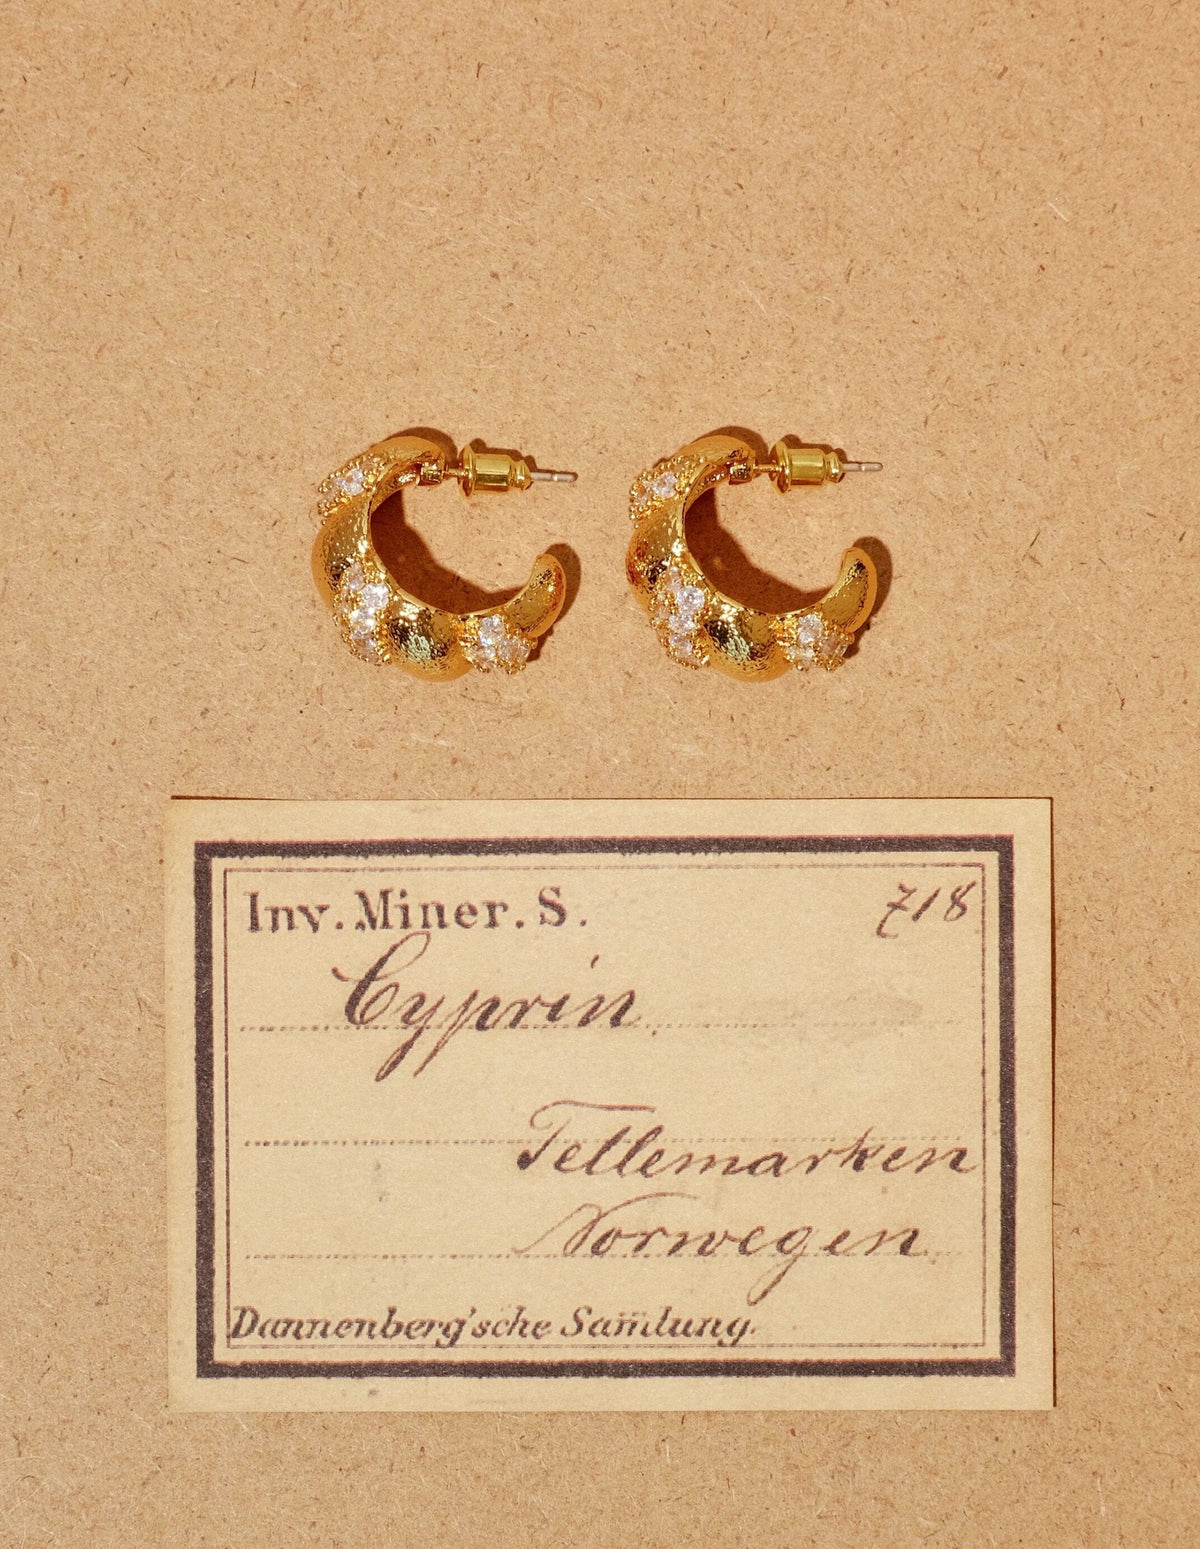 Inv. Miner. S. 718
Cyprin.
Tellemarken
Norwegen
Dannenberg'sche Sam̄lung.